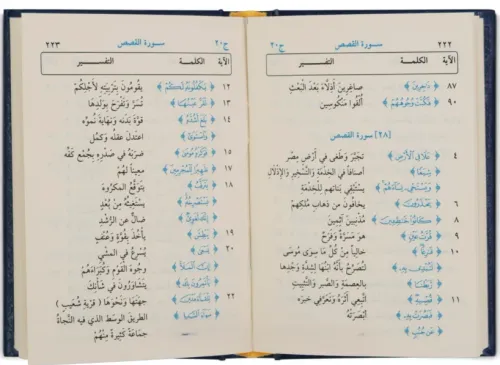 ٢٢٢ سورة القصص ج٢٠
الآية الكلمة التفسير
٨٧ ﴿ دَاخِرِينَ ﴾ صاغِرِينَ أذِلّاءَ بَعْدَ البَعْثِ
٩٠ ﴿ فَكُبَّتْ وُجُوهُهُمْ ﴾ أُلْقُوا مَنْكُوسِين
[٢٨] سورة القصص
٤ ﴿ عَلَا فِي الْأَرْضِ ﴾ تجَبَّرَ وَطَغَى في أرْضِ مِصْرَ
﴿ شِيَعًا ﴾ أصنافاً في الخِدْمَةِ والتَّسْخِيرِ والإذلَالِ
﴿ وَيَسْتَحْيِي نِسَاءَهُمْ ﴾ يَسْتَبْقِي بَنَاتِهم لِلْخِدْمَةِ
٦ ﴿ يَحْذَرُونَ ﴾ يخافُونَ من ذهابِ مُلْكِهِمْ
٨ ﴿ كَانُوا خَاطِئِينَ ﴾ مُذْنِبِينَ آثِمينَ
٩ ﴿ قُرَّتُ عَيْنٍ ﴾ هو مَسَرَّةٌ وَفَرَحٌ
١٠ ﴿ فَارِغًا ﴾ خالياً مِنْ كُلِّ مَا سِوَى مُوسَى
﴿ لَتُبْدِي بِهِ ﴾ لَتُصَرِّحُ بأنَّه ابْنُهَا لِشِدَّةِ وَجْدِها
﴿ رَبَطْنَا ﴾ بالعِصْمَةِ والصَّبْرِ والتَّثْبِيتِ
١١ ﴿ قُصِّيهِ ﴾ اتَّبِعي أثَرَهُ وتَعَرَّفي خَبَرَه
﴿ فَبَصُرَتْ بِهِ ﴾ أبْصَرَتْهُ
﴿ عَنْ جُنُبٍ ﴾
ج٢٠ سورة القصص ٢٢٣
الآية الكلمة التفسير
١٢ ﴿ يَكْفُلُونَهُ لَكُمْ ﴾ يقُومُونَ بِتَرْبِيَتِهِ لأجْلِكُمْ
١٣ ﴿ تَقَرَّ عَيْنُهَا ﴾ تُسَرَّ وَتَفْرَحَ بِوَلَدِهَا
١٤ ﴿ بَلَغَ أَشُدَّهُ ﴾ قُوَّةَ بَدَنِه وَنِهَايَةَ نُمُوِّه
﴿ وَاسْتَوَى ﴾ اعتدَلَ عقلُه وكَمُل
١٥ ﴿ فَوَكَزَهُ مُوسَى ﴾ ضرَبَهُ في صَدْرِه بِجُمْعِ كفِّه
١٧ ﴿ ظَهِيرًا لِلْمُجْرِمِينَ ﴾ مُعيناً لهم
١٨ ﴿ يَتَرَقَّبُ ﴾ يتوقَّعُ المكروهَ
﴿ يَسْتَصْرِخُهُ ﴾ يَستغيثُهُ مِنْ بُعْدٍ
﴿ إِنَّكَ لَغَوِيٌّ ﴾ ضالٌّ عن الرُّشْدِ
١٩ ﴿ يَبْطِشَ ﴾ يأخُذَ بِقُوَّةٍ وَعُنْفٍ
٢٠ ﴿ يَسْعَى ﴾ يُسْرِعُ في المشْيِ
﴿ إِنَّ الْمَلَأَ ﴾ وجُوهَ القَوْمِ وَكُبَرَاءَهُمْ
﴿ يَأْتَمِرُونَ بِكَ ﴾ يَتَشَاوَرُونَ في شأنِك
٢٢ ﴿ تِلْقَاءَ مَدْيَنَ ﴾ جهتَها وَنَحْوَهَا ( قَرْيَةِ شُعَيْبٍ )
﴿ سَوَاءَ السَّبِيلِ ﴾ الطريقَ الوسَطَ الذي فيه النَّجاةُ
جماعَةً كثيرةً مِنْهُمْ